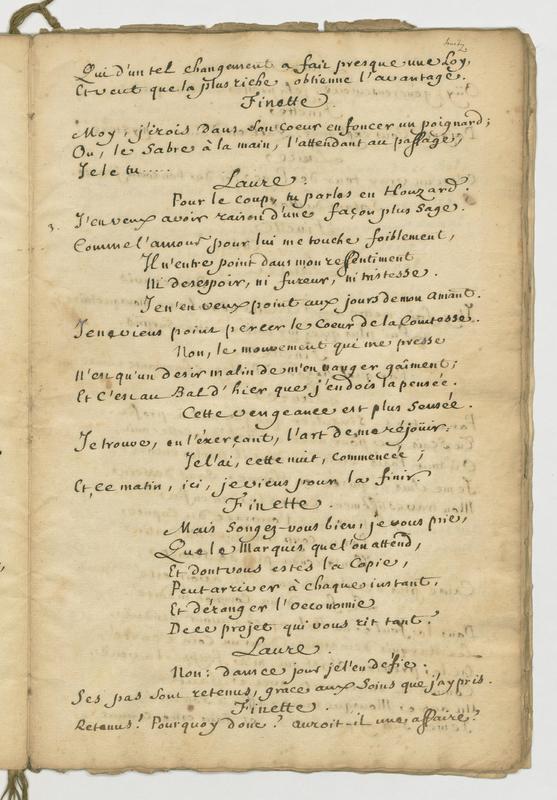 Qui d'un tel changement a fait presque une Loy,
Et veut que la plus riche obtienne l'avantage.
Finette.
Moy, j'irois dans son Coeur enfoncer un poignard;
Ou, le Sabre à la main, l'attendant au passage,
Je le tu.....
Laure.
Pour le coup, tu parles en Houzard.
3. J'en veux avoir raison d'une façon plus Sage.
Comme l'amour pour lui me touche foiblement,
Il n'entre point dans mon ressentiment
Ni desespoir, ni fureur, ni tristesse.
Je n'en veux point aux jours de mon Amant.
Je ne viens point percer le Coeur de la Comtesse.
Non, le mouvement qui me presse
N'est qu'un desir malin de m'en vanger gaîment;
Et C'est au Bal d'hier que j'en dois la pensée.
Cette vengeance est plus Sensée.
Je trouve, en l'éxerçant, l'art de me réjoüir.
Je l'ai, cette nuit, commencée;
Et, ce matin, ici, je viens pour la finir.
Finette.
Mais Songez-vous bien, je vous prie,
Que le Marquis que l'on attend,
Et dont vous estes la Copie,
Peut arriver à chaque instant,
Et déranger l'oeconomie
De ce projet qui vous rit tant.
Laure.
Non: dans ce jour je l'en défie.
Ses pas sont retenus, grace aux Soins que j'ay pris.
Finette.
Retenus! Pourquoy donc? auroit-il une affaire?